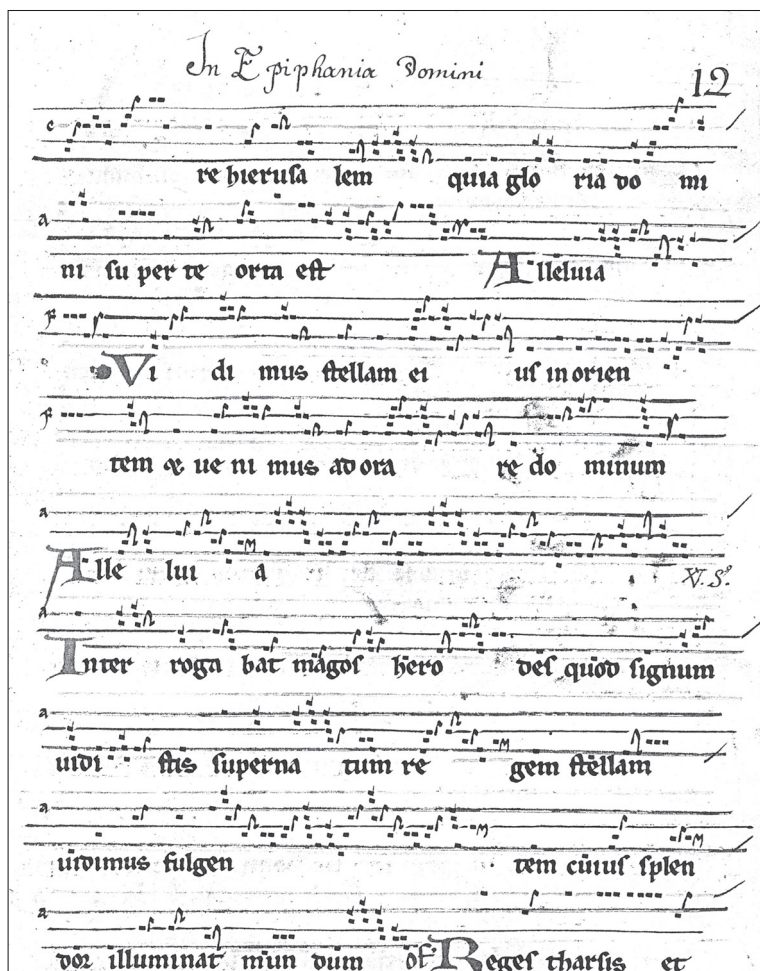 In Epiphania Domini
12
re hierusa lem quia glo ria do mi
ni su per te orta est Alleluia
Vi di mus stellam ei us in orien
tem & ue ni mus ad ora re do minum
Alle lui a
Inter roga bat magos hero des quod signum
uidi stis superna tum re gem stellam
uidimus fulgen tem cuius splen
dor illuminat mun dum of Reges tharsis et